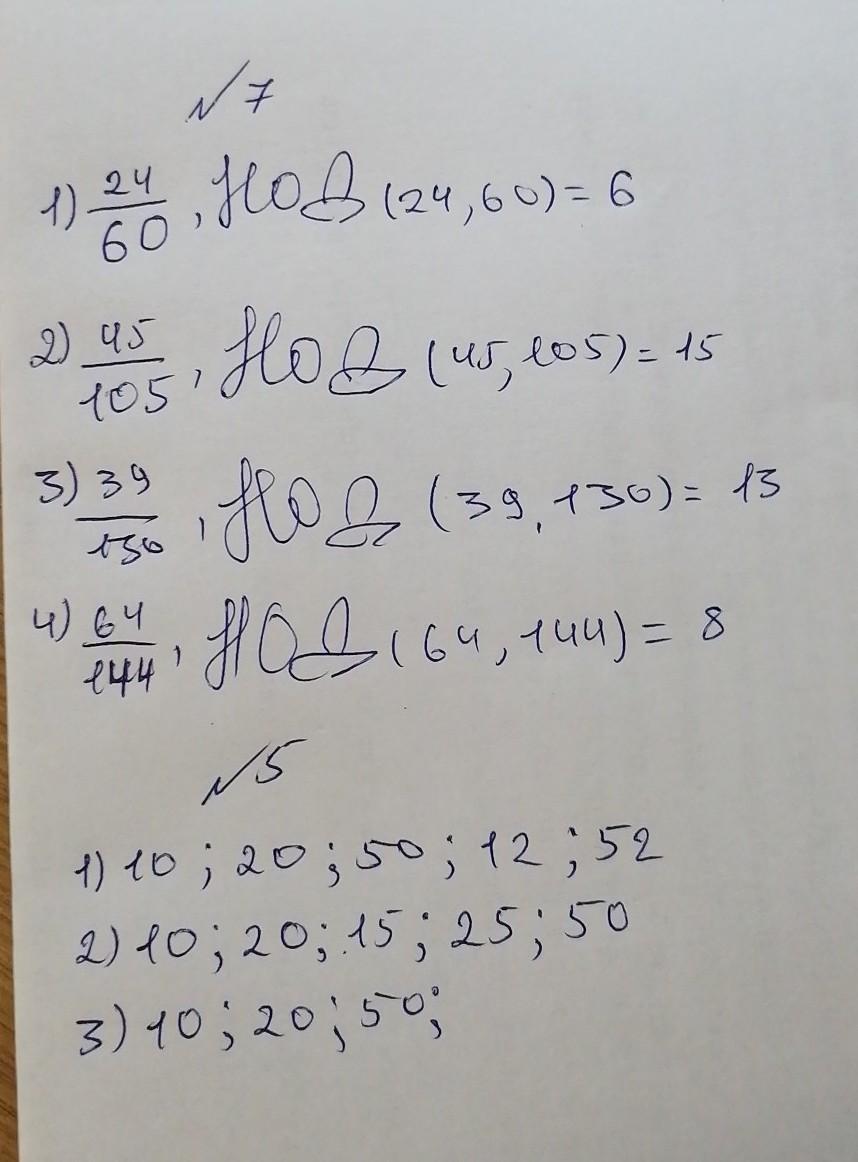 №7
1) 24/60, НОД (24,60)= 6
2) 45/105, НОД (45,105)= 15
3) 39/130, НОД (39,130)= 13
4) 64/144, НОД (64,144)= 8
№5
1) 10; 20; 50; 12; 52
2) 10; 20; 15; 25; 50
3) 10; 20; 50;